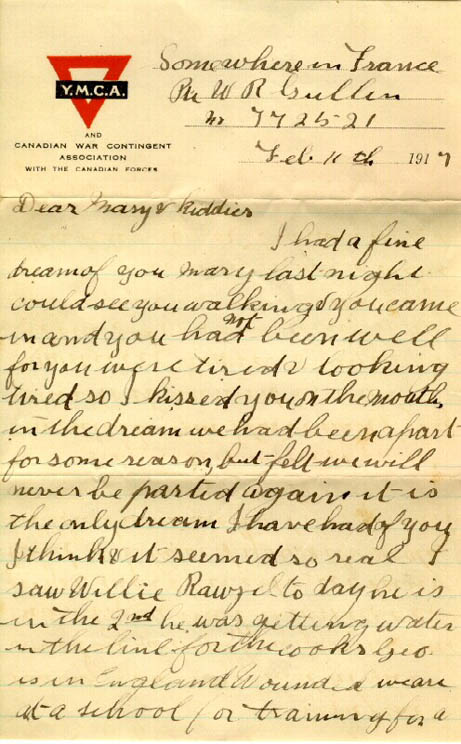 Y.M.C.A.
AND
CANADIAN WAR CONTINGENT
ASSOCIATION
WITH THE CANADIAN FORCES
Somewhere in France
Pte W R Gullen
No 772521
Feb 11th 1917
Dear Mary & Kiddies
I had a fine
dream of you Mary last night
could see you walking & you came
in and you had not been well
for you were tired & looking
tired so I kissed you on the mouth,
in the dream we had been apart
for some reason, but felt we will
never be parted again it is
the only dream I have had of you
I think & it seemed so real I
saw Willie to day he is
in the 2nd he was getting water
in the line for the cooks Geo.
is in England Wounded we are
at a school for training for a